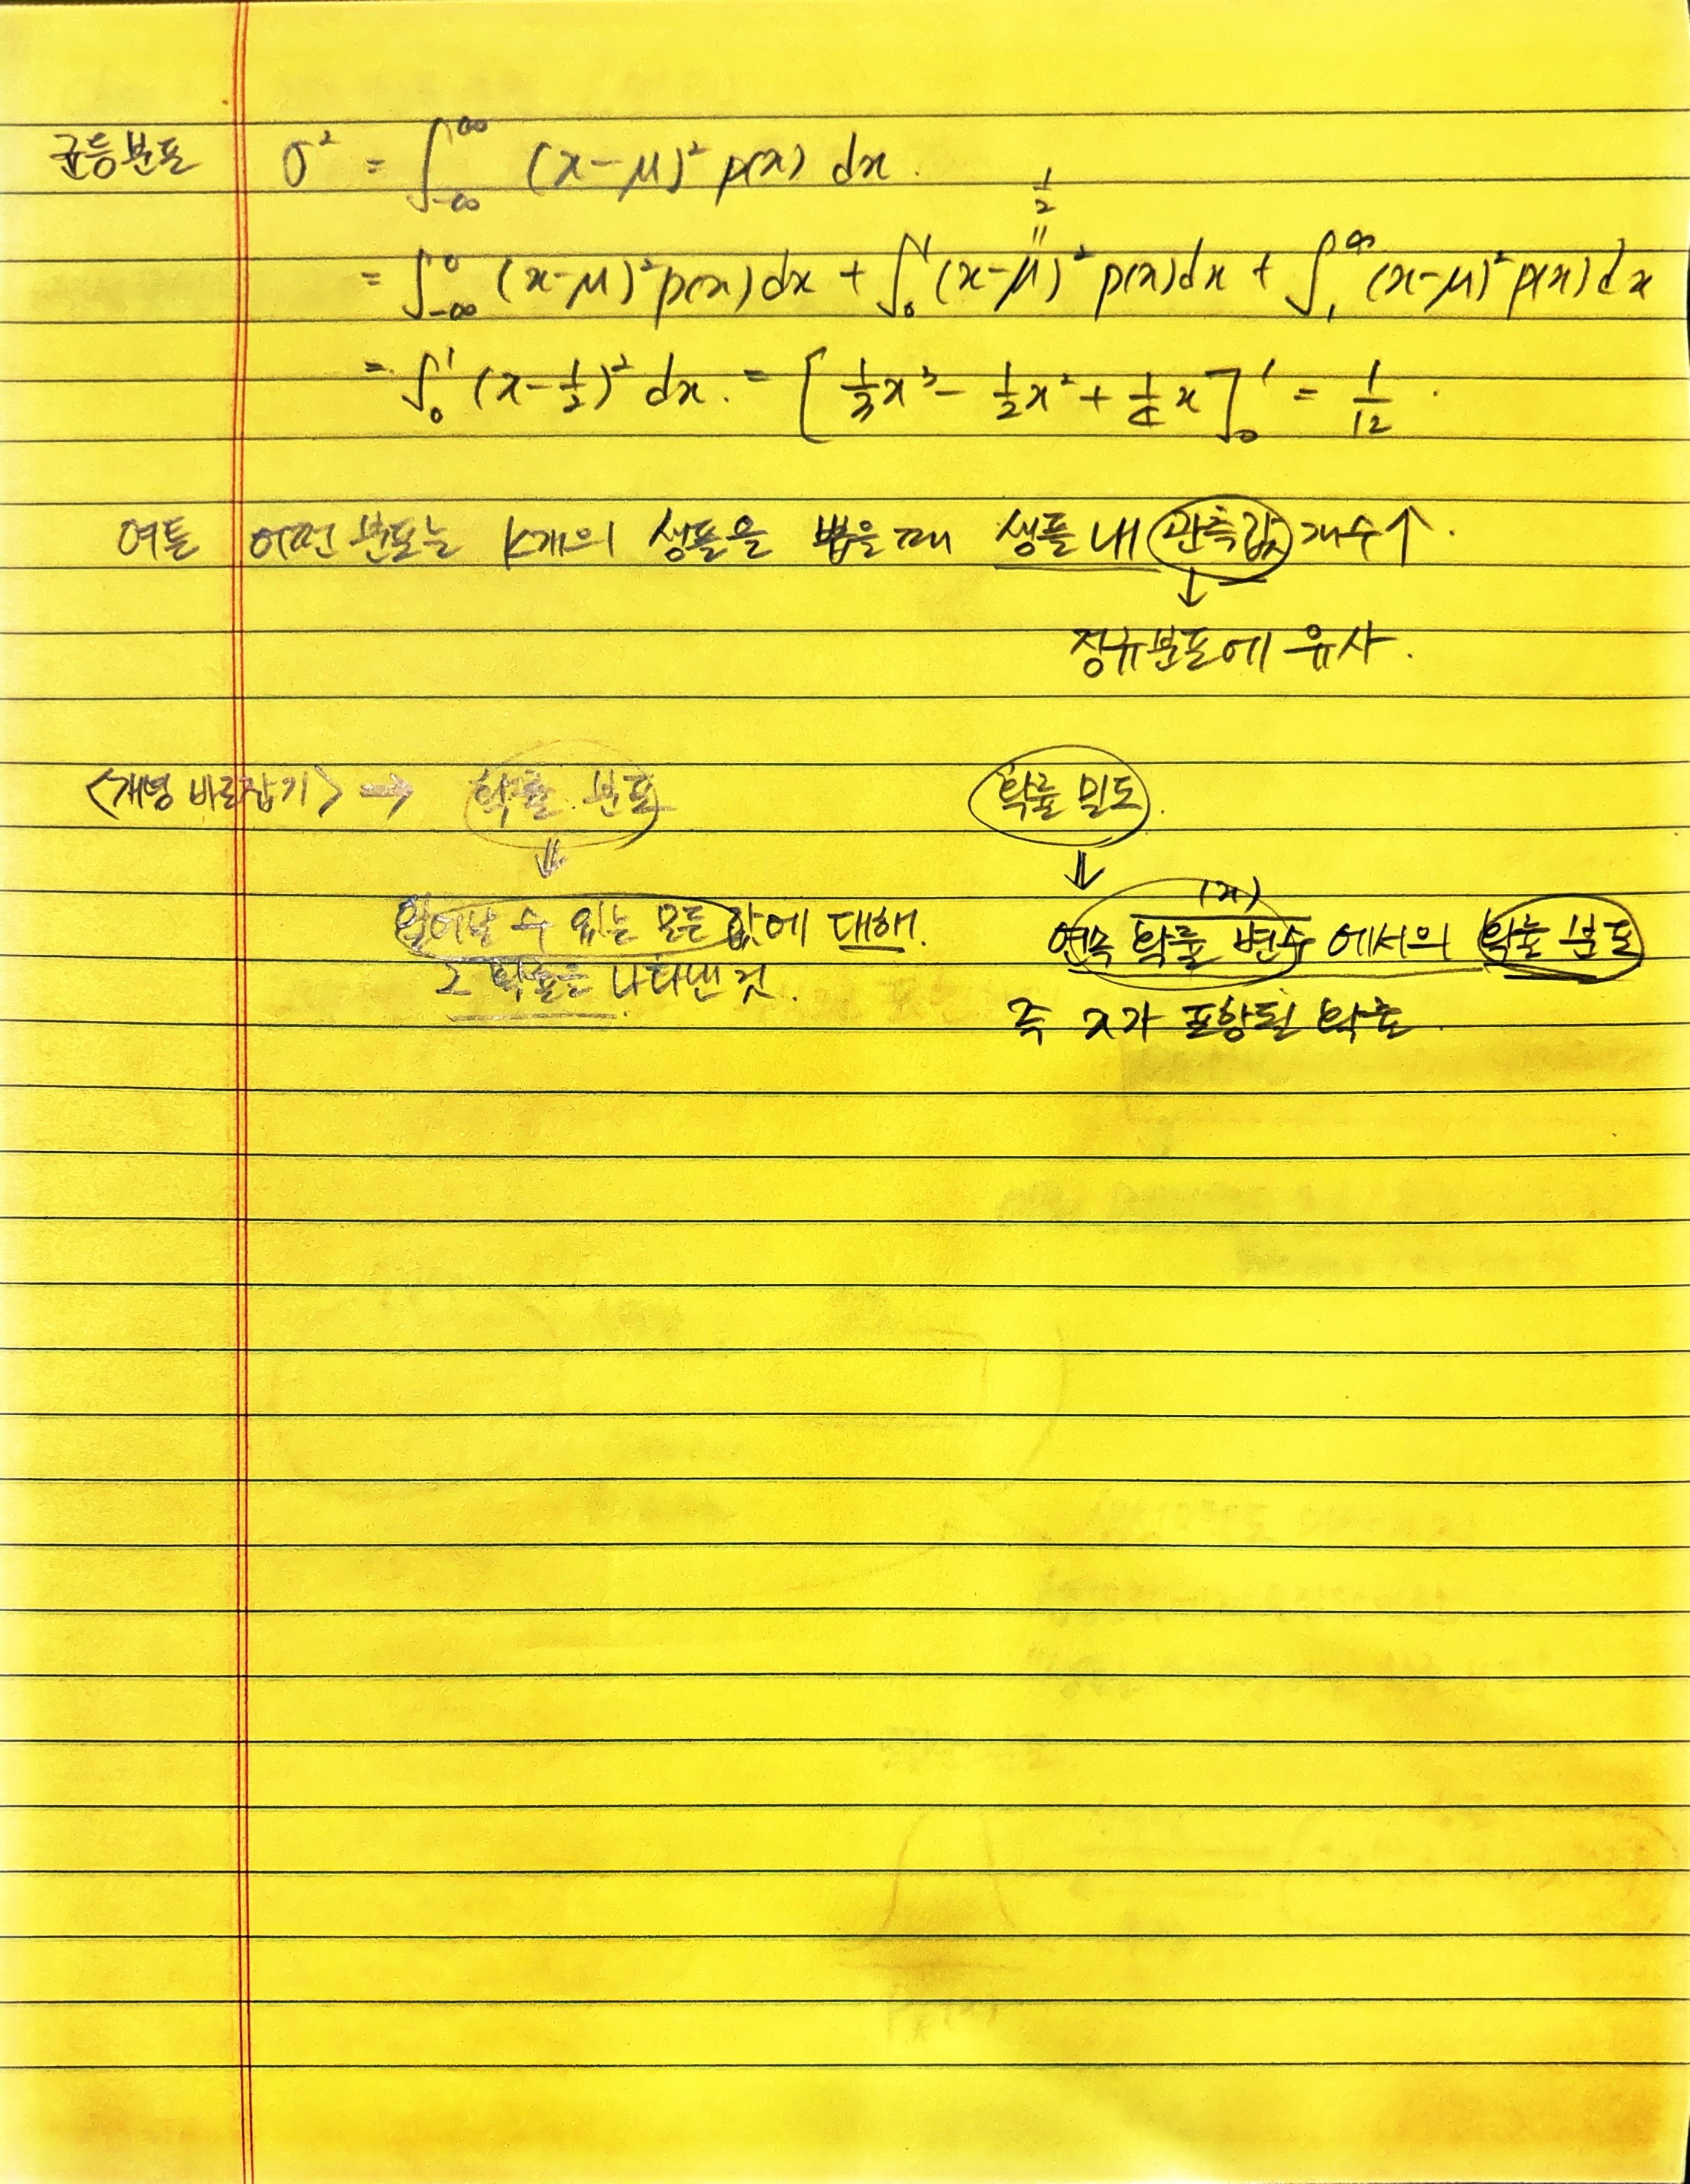 균등분포 σ² = ∫_{-∞}^{∞} (x-μ)² p(x) dx.
1/2
=
= ∫_{-∞}^{0} (x-μ)² p(x) dx + ∫_{0}^{1} (x-μ)² p(x) dx + ∫_{1}^{∞} (x-μ)² p(x) dx
= ∫_{0}^{1} (x-1/2)² dx. = [1/3 x³ - 1/2 x² + 1/4 x]_{0}^{1} = 1/12.
여튼 어떤 분포는 k개의 샘플을 뽑을 때 샘플 내 관측값 개수↑.
↓
정규분포에 유사.
<개념 바로잡기> → 확률 분포 확률 밀도.
⇓ ⇓
(x)
일어날 수 있는 모든 값에 대해. 연속 확률 변수 에서의 확률 분포
그 확률을 나타낸 것.
즉 x가 포함될 확률.